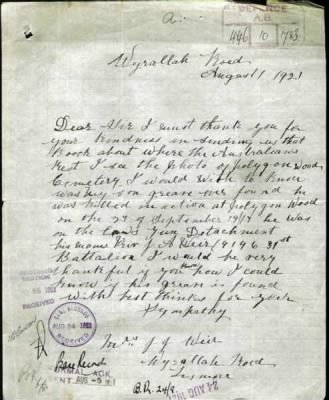 a.
DEFENCE
A.B.
446 10 733
Wyrallah Road
August 1 1921
Dear Sir I must thank you for
your kindness in sending us that
Boock about where the Australians
Rest I see the photo of polygon wood
Cemetery I would wish to know
was my son grean ever found he
was killed in action at polygon wood
on the 29 of September 1917 he was
on the Lewis Gun Detatchment
his name Priv J A Weir (4946 31st
Battalion I would be very
thankful if you how I could
know if his grean is found
with best thinkes for your
Sympathy
Mrs J J Weir
Wyrallah Road
Lismore
RECEIVED
AUG 24 1921
RECEIVED
Base Records
FORMAL ACK.
SENT AUG -5 21
B.R. 24/8
24 AUG 1921